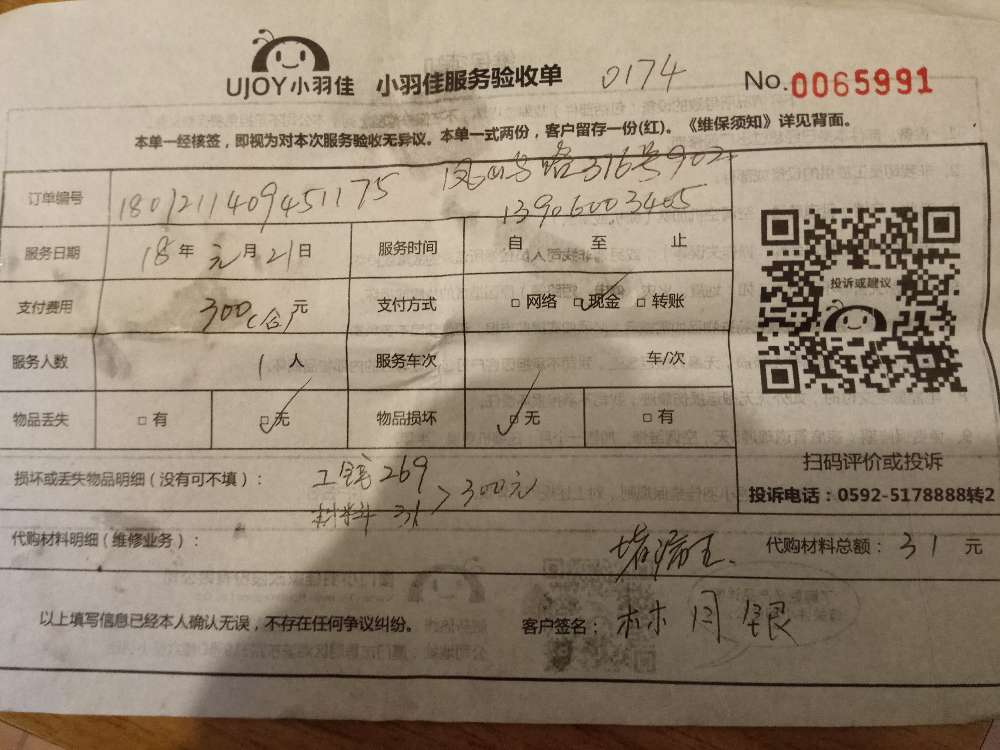 UJOY小羽佳 小羽佳服务验收单 0174 No.0065991
本单一经核签，即视为对本次服务验收无异议。本单一式两份，客户留存一份(红)。《维保须知》详见背面。
订单编号 1801211409451175 路316号902
13906003405
服务日期 18年元月21日 服务时间 自 至 止
支付费用 300(合)元 支付方式 □网络 □现金 □转账
服务人数 1人 服务车次 车/次
物品丢失 □有 □无 物品损坏 □无 □有
投诉或建议
扫码评价或投诉
投诉电话：0592-5178888转2
损坏或丢失物品明细（没有可不填）： 工钱269
料 31 > 300元
代购材料明细（维修业务）： 堵漏王 代购材料总额：31元
以上填写信息已经本人确认无误，不存在任何争议纠纷。 客户签名：林月银